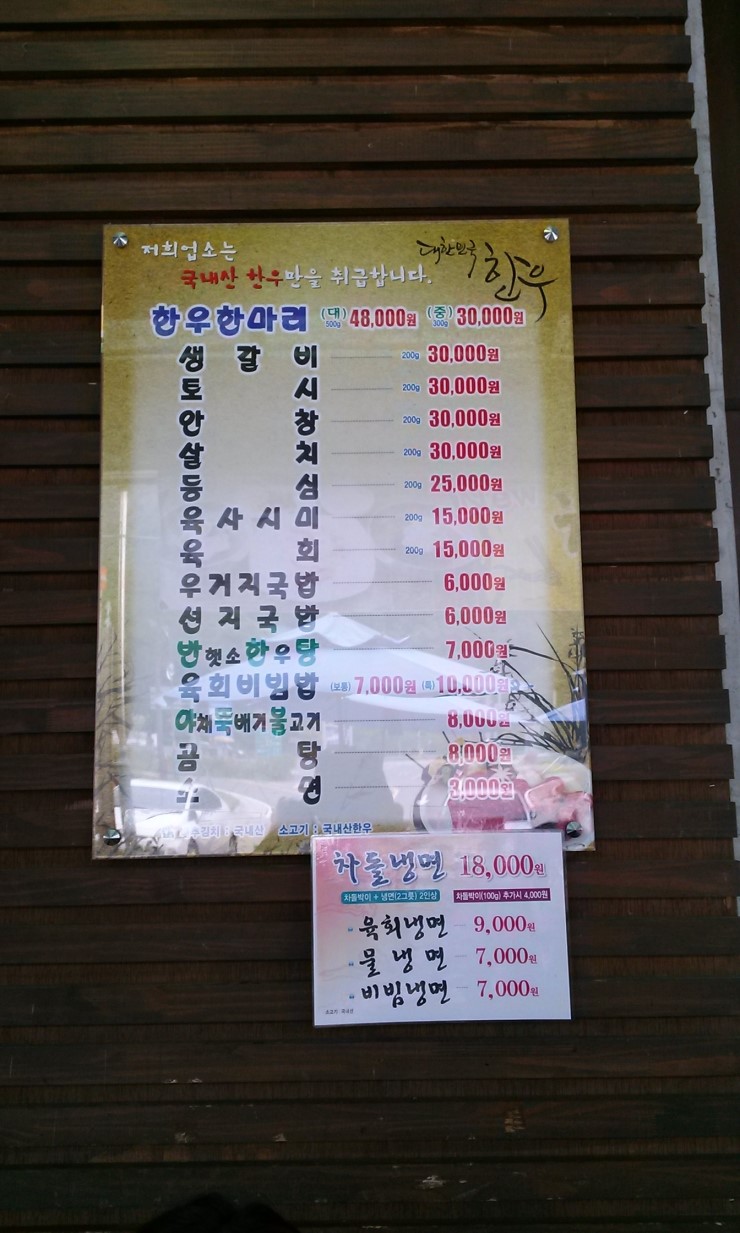 저희업소는
국내산 한우만을 취급합니다.
대한민국 한우
한우한마리 (대) 500g 48,000원 (중) 300g 30,000원
생갈비 200g 30,000원
토시 200g 30,000원
안창 200g 30,000원
살치 200g 30,000원
등심 200g 25,000원
육사시미 200g 15,000원
육회 200g 15,000원
우거지국밥 6,000원
선지국밥 6,000원
반햇소한우탕 7,000원
육회비빔밥 (보통) 7,000원 (특) 10,000원
야채뚝배기불고기 8,000원
곰탕 8,000원
소면 3,000원
추김치 : 국내산 소고기 : 국내산한우
차돌냉면 18,000원
차돌박이 + 냉면(2그릇) 2인상 차돌박이(100g) 추가시 4,000원
육회냉면 9,000원
물냉면 7,000원
비빔냉면 7,000원
소고기 : 국내산